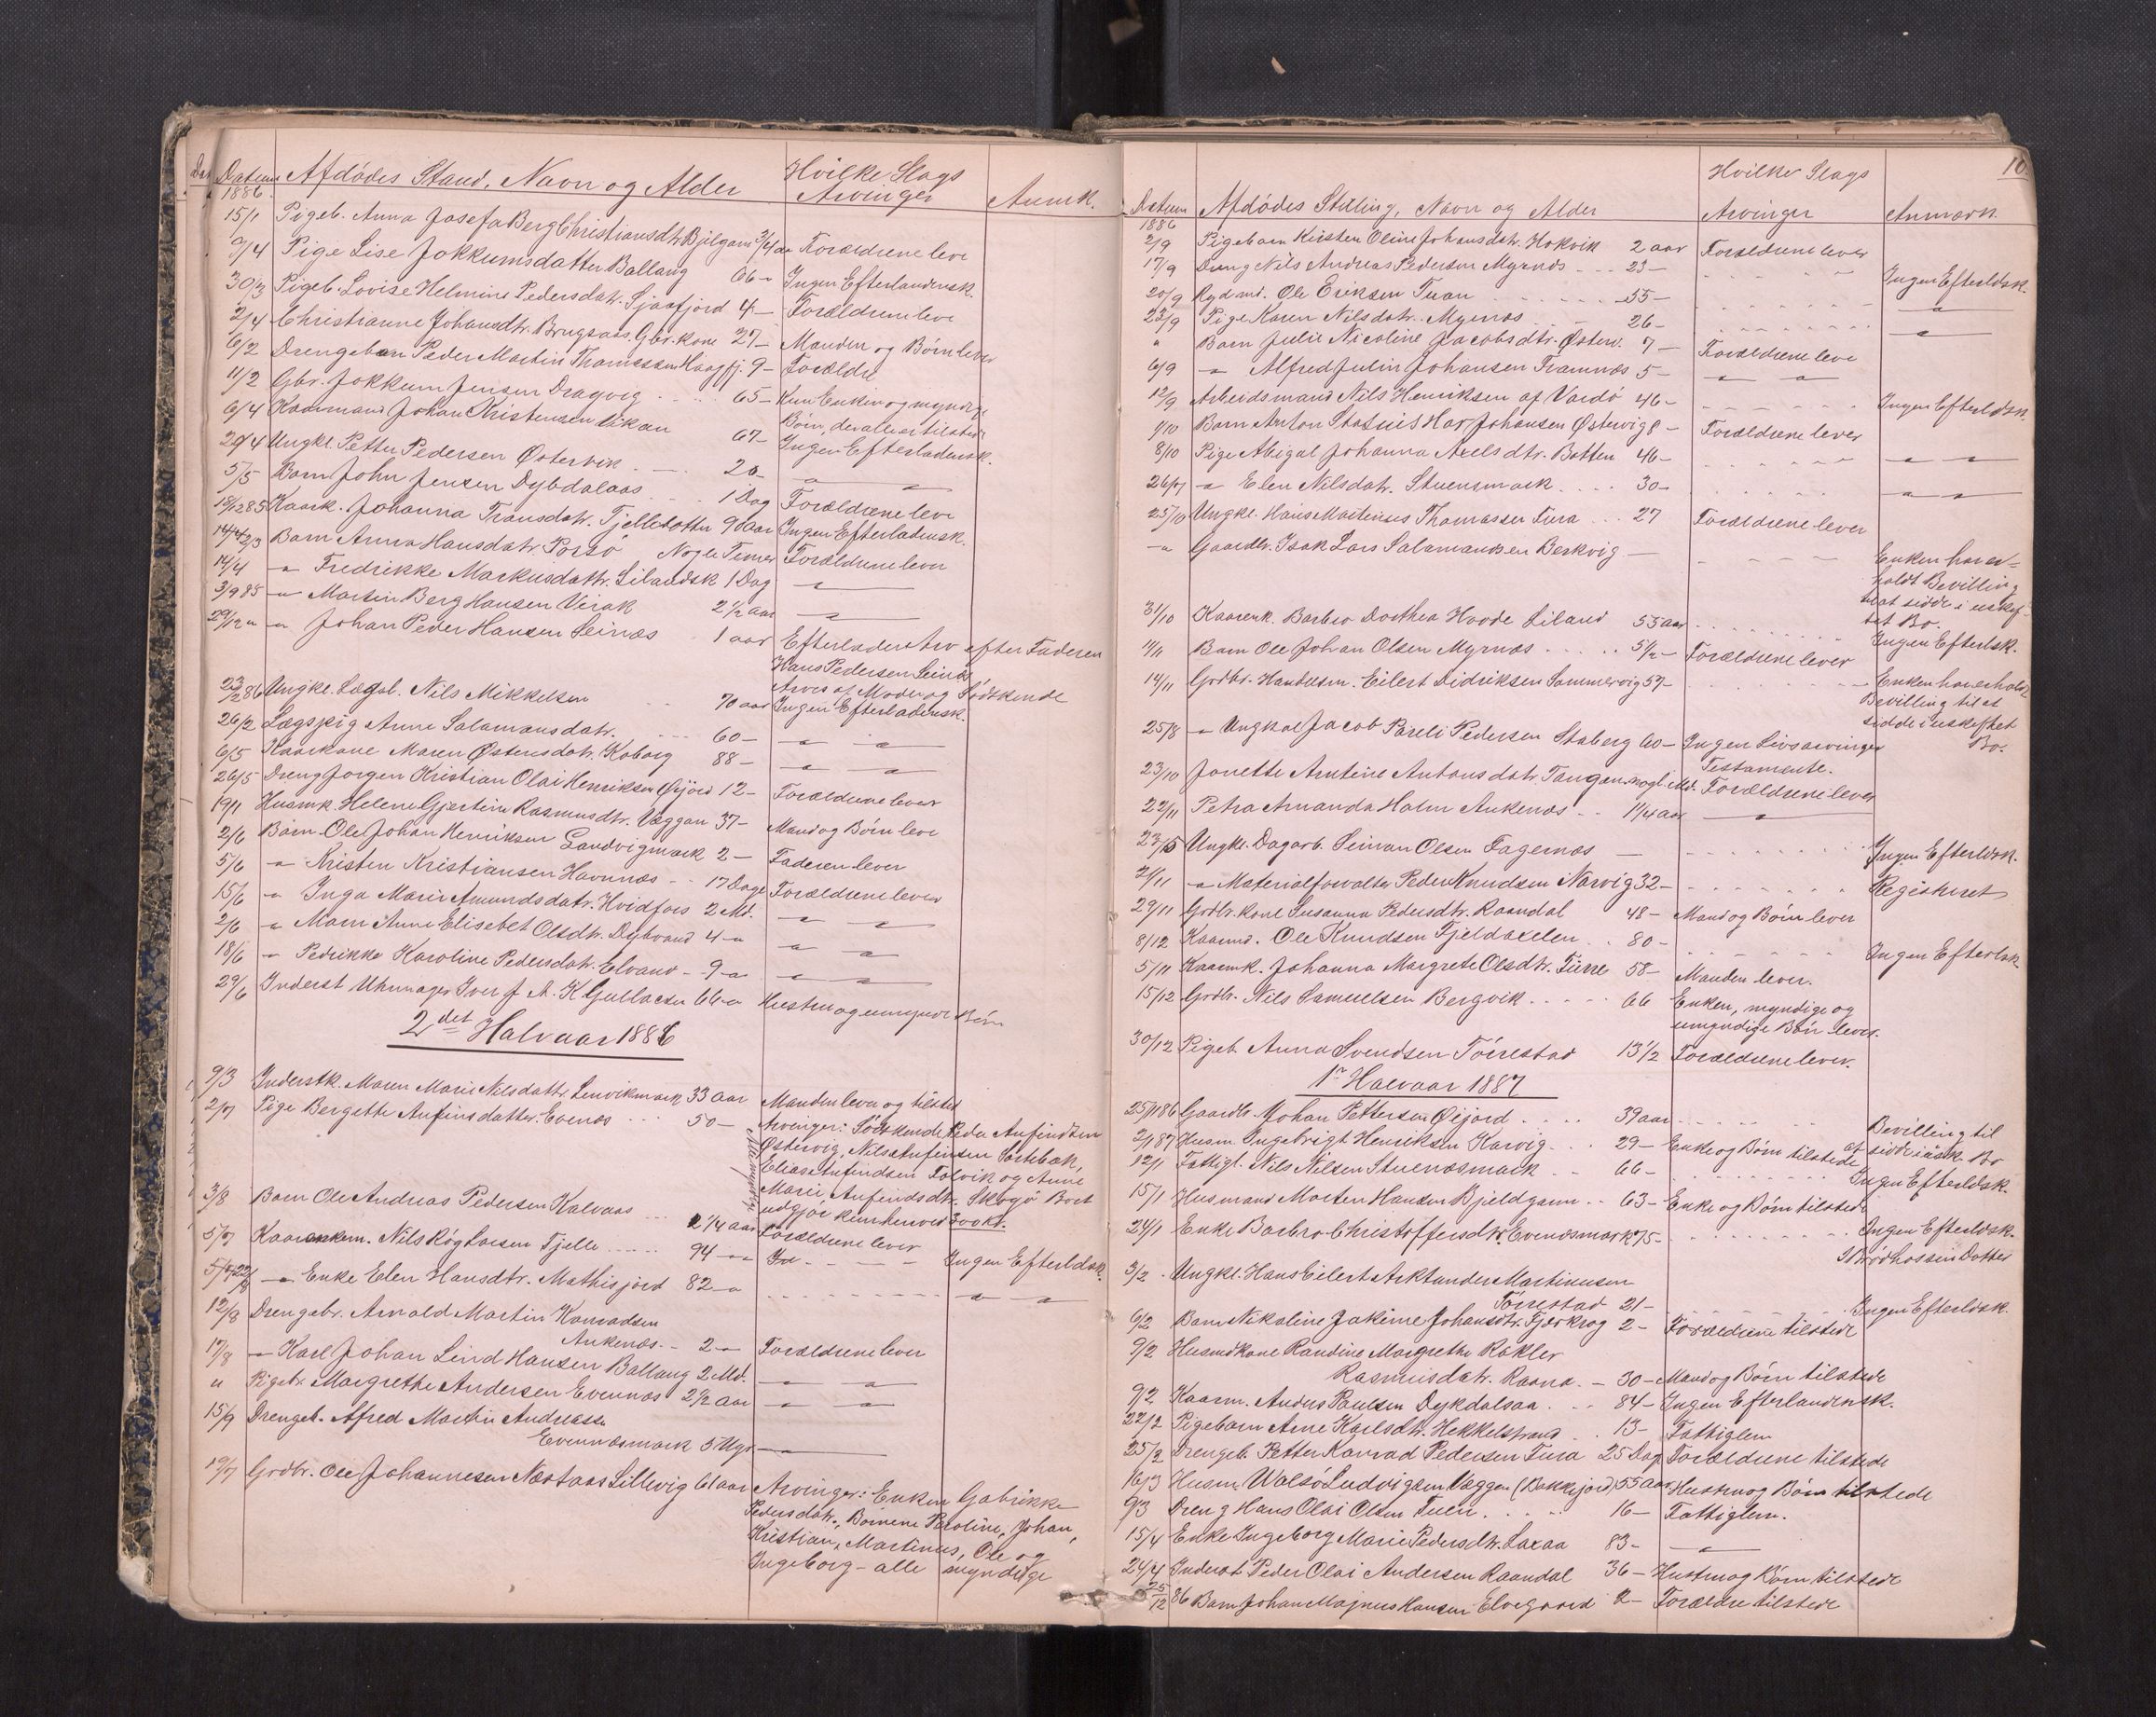 Datum Afdödes Stand, Navn og Alder Hvilke Slags Arvinger Anmk.
1886.
15/1 Pigeb. Anna Josefa Berg Christiansdtr. Bjelgam 3/4 aar Forældrene leve
9/4 Pige Lise Jokkumsdatter Ballang 66 " Ingen Efterladensk.
30/3 Pigeb. Lovise Helmine Pedersdatr. Sjaafjord 4 – Forældrene leve
2/4 Christianne Johansdtr. Brugsaas, Gbr. kone 27 – Manden og Börn lever
6/2 Drengebarn Peder Martin Thomassen Haagfj. 9 – Forældre
11/2 Gbr. Jokkum Jensen Dragvig 65 – Kun Enken og myndige
Börn, der alle er tilstede
6/4 Kaarmand Johan Kristensen Likan 67 – Ingen Efterladensk.
20/4 Ungkl. Petter Pedersen Östervik 20 " "
5/5 Barn John Jensen Dybdalaas 1 Dag Forældrene leve
18/12 85 Kaark. Johanna Transdatr. Fjellebotten 90 aar Ingen Efterladensk.
Barn Anna Hansdatr. Porsö Nogle Timer Forældrene lever
14/4 " Fredrikke Markusdattr. Lilandsk 1 Dag "
3/9 85 " Martin Berg Hansen Virak 2 1/2 aar "
29/12 " " Johan Peder Hansen Leinæs 1 aar Efterlader Arv efter Faderen
Hans Pedersen Leinæs,
Arves af Moder og Södskende
23/2 86 Ungkl. Lægsl. Nils Mikkelsen 70 aar Ingen Efterladensk.
26/2 Lægspig Anne Salamansdatr. 60 – " "
6/5 Kaarkone Maren Östensdatr. Koborg 88 – " "
26/5 Dreng Jorgen Kristian Olai Henriksen Öijord 12 – Forældrene lever
19/1 Husmk. Helene Gjertine Rasmusdtr. Væggan 37 – Mand og Börn leve
2/6 Barn Ole Johan Henriksen Sandvigmark 2 – Faderen lever
5/6 " Kristen Kristiansen Havnnæs 17 Dage Forældrene lever
15/6 " Inga Marie Amundsdatr. Hvidfors 2 Md. " "
2/6 " Marn Anne Elisebet Olsdtr. Dybvand 4 " " "
18/6 " Pedrikke Karoline Pedersdatr. Elvand 9 " " "
29/6 Inderst Uhrmager Iver J. A. K. Gullaesen 66 " Hustru og umynd. Börn
2det Halvaar 1886
9/3 Inderstk. Maren Marie Nilsdattr. Lenvikmark 33 aar Manden lever og tilsted
2/7 Pige Bergette Anfinsdatter Evenæs 50 – Arvinger: Södskende Peder Anfindsen
Östervig, Nils Anfinsen Sörtebak,
Elias Anfindsen Tolvik og Anne
Marie Anfindsdtr. Skogö Boet
udgjör kun henved 300 Kr.
3/8 Barn Ole Andreas Pedersen Kalvaas 2 1/4 aar Forældrene lever
5/7 Kaarenkem. Nils Röglaesen Fjelle 94 " Ingen Efterldsk.
" Enke Elen Hansdtr. Mathisjord 82 " " "
12/8 Drengebr. Arnold Martin Konradsen
Ankenæs 2 " Forældrene lever
17/8 " Karl Johan Lind Hansen Ballang 2 Md. " "
" Pigebr. Margrethe Andersen Evennæs 2 1/2 aar " "
15/9 Drengeb. Afred Martin Andreass
Evennæsmark 5 Ugr. "
19/7 Grdbr. Ole Johannesen Næstaas Lillevig 61 aar Arvinger: Enken Gabrikke
Pedersdatr., Bornene Paroline, Johan,
Kristian, Martinus, Ole og
Ingeborg – alle myndige
10.
Datum Afdödes Stilling, Navn og Alder Hvilke Slags Arvinger Anmærk.
1886
2/9 Pigebarn Kirsten Oline Johansdatr. Hokvik 2 aar Forældrene lever
17/9 Dreng Nils Andreas Pedersen Myrnes 23 – Ingen Efterldsk.
20/9 Rydmd. Ole Eriksen Tuan 55 – "
23/9 Pige Karen Nilsdatr. Myrnæs 26 – "
" Barn Julie Nicoline Jacobsdtr. Österv. 7 – Forældrene leve
6/9 " Alfred Julin Johansen Framnæs 5 – " "
12/9 Arbeidsmand Nils Henriksen af Vardö 46 – Ingen Efterldsk.
1/10 Barn Anton Statius Har Johansen Östervig 8 – Forældrene lever
8/10 Pige Abigal Johanna Axelsdtr. Botten 46 – " "
26/7 " Elen Nilsdatr. Stuensmark 30 – " "
25/10 Ungkl. Hans Martenses Thomassen Fura 27 Forældrene lever
" Gaardbr. Isak Lars Salamansen Berkvig – Enken har er-
holdt Bevilling
til at sidde i uskif-
tet Bo.
31/10 Kaarenk. Barbro Dorthea Hvode Liland 55 aar Ingen Efterlsk.
11/11 Barn Ole Johan Olsen Myrnæs 5 1/2 – Forældrene lever
14/11 Grdbr. Handelsm. Eilert Didriksen Sommervig 57 – Enken har erholdt
Bevilling til at
sidde i uskiftet
Bo.
25/8 " Ungkal Jacob Pareli Pedersen Staberg 60 – Ingen Livsarvinger
Testamente.
23/10 Jonette Antine Antonsdatr. Tangen nogl. Md. Forældrene lever
22/11 Petra Amanda Holm Ankenæs 1 1/4 aar "
23/5 Ungkr. Dagarb. Seiman Olsen Fagernæs – Ingen Efterldsk.
2/11 " Materialforvalter Peder Knudsen Narvig 32 – Registreret
29/11 Grdbr. Kone Susanna Pedersdtr. Raandal 48 – Mand og Börn lever
8/12 Kaarmd. Ole Knudsen Fjeldaxelen 80 – Ingen Efterlsk
5/11 Kaarmk. Johanna Margrete Olsdtr. Furre 58 – Manden lever.
15/12 Grdbr. Nils Samuelsen Bergvik 66 Enken, myndige og
umyndige Börn lever.
30/12 Pigeb. Anna Svendsen Törrestad 13 1/2 Forældrene lever.
1r Halvaar 1887
25/1 86 Gaardb. Johan Pettersen Öijord 39 aar Bevilling til
at sidde i usk. Bo
2/1 87 Husm. Ingebrigt Henriksen Karvig 29 – Enke og Börn tilstede
12/1 Fattigl. Nils Nilsen Stuenæsmark 66 – Ingen Efterldsk.
15/1 Husmand Morten Hansen Bjeldgam 63 – Enke og Börn tilstede
24/1 Enke Barbro Christoffersdtr. Evenæsmark 75 – Ingen Efterldsk.
3/2 Ungkl. Hans Eilert Arktander Martinusen
Törrestad 21 – Ingen Efterldsk.
6/2 Barn Nikoline Jakime Johansdtr. Fjerkrog 2 – Forældrene tilstede
9/2 Husmdkone Randine Margrethe Rökler
Rasmusdatr. Raana 30 – Mand og Börn tilstede
9/2 Kaarm. Anders Paulsen Dykdalsaa 84 – Ingen Efterlandensk.
22/2 Pigebarn Arne Karlsdtr. Hekkelstrand 13 – Fattiglem
25/2 Drengeb. Petter Konrad Pedersen Fura 25 Dag Forældrene tilstede
16/3 Husm. Walsö Ludvigsen Væggen (Bakkejord) 55 aar Hustru og Börn tilstede
9/3 Dreng Hans Olai Olsen Tuen 16 – Fattiglem.
15/4 Enke Ingeborg Marie Pedersdtr. Laxaa 83 – "
24/4 Inderst Peder Olai Andersen Raandal 36 – Hustru og Börn tilstede
25/12 86 Barn Johan Majnus Hansen Elvegaard 2 – Forældre tilstede